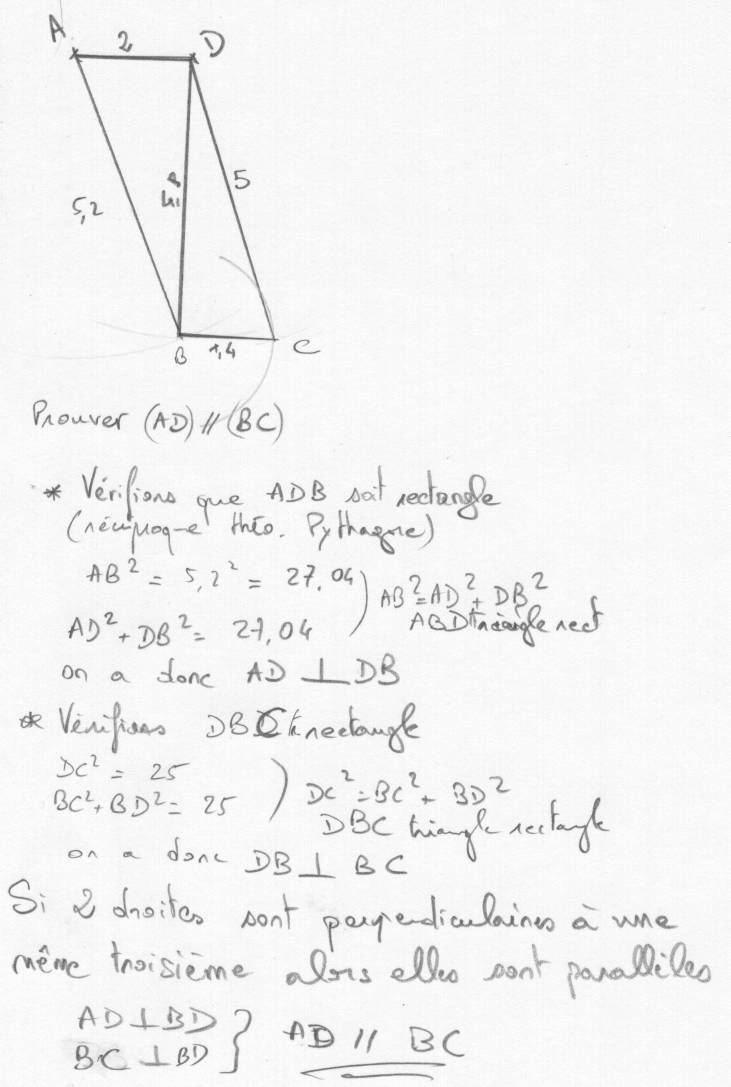 A 2 D
5,2
4,8
5
B 1,4 C
Prouver (AD) // (BC)
* Vérifions que ADB soit rectangle
(réciproque théo. Pythagore)
AB² = 5,2² = 27,04 ) AB² = AD² + DB²
AD² + DB² = 27,04 ABD triangle rect
on a donc AD ⊥ DB
* Vérifions DBC rectangle
DC² = 25
BC² + BD² = 25 ) DC² = BC² + BD²
DBC triangle rectangle
on a donc DB ⊥ BC
Si 2 droites sont perpendiculaires à une
même troisième alors elles sont parallèles
AD ⊥ BD
BC ⊥ BD } AD // BC